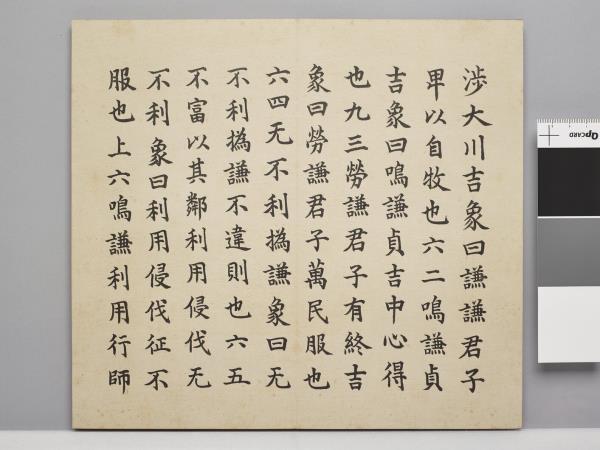 涉大川吉象曰謙謙君子
卑以自牧也六二鳴謙貞
吉象曰鳴謙貞吉中心得
也九三勞謙君子有終吉
象曰勞謙君子萬民服也
六四无不利撝謙象曰无
不利撝謙不違則也六五
不富以其鄰利用侵伐无
不利象曰利用侵伐征不
服也上六鳴謙利用行師
QPCARD